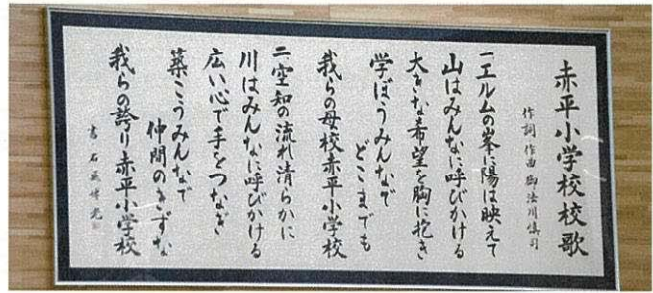 赤平小学校校歌
作詞・作曲 御法川慎司
一エルムの峯に陽は映えて
山はみんなに呼びかける
大きな希望を胸に抱き
学ぼうみんなで
どこまでも
我らの母校赤平小学校
二空知の流れ清らかに
川はみんなに呼びかける
広い心で手をつなぎ
築こうみんなで
仲間のきずな
我らの誇り赤平小学校
書